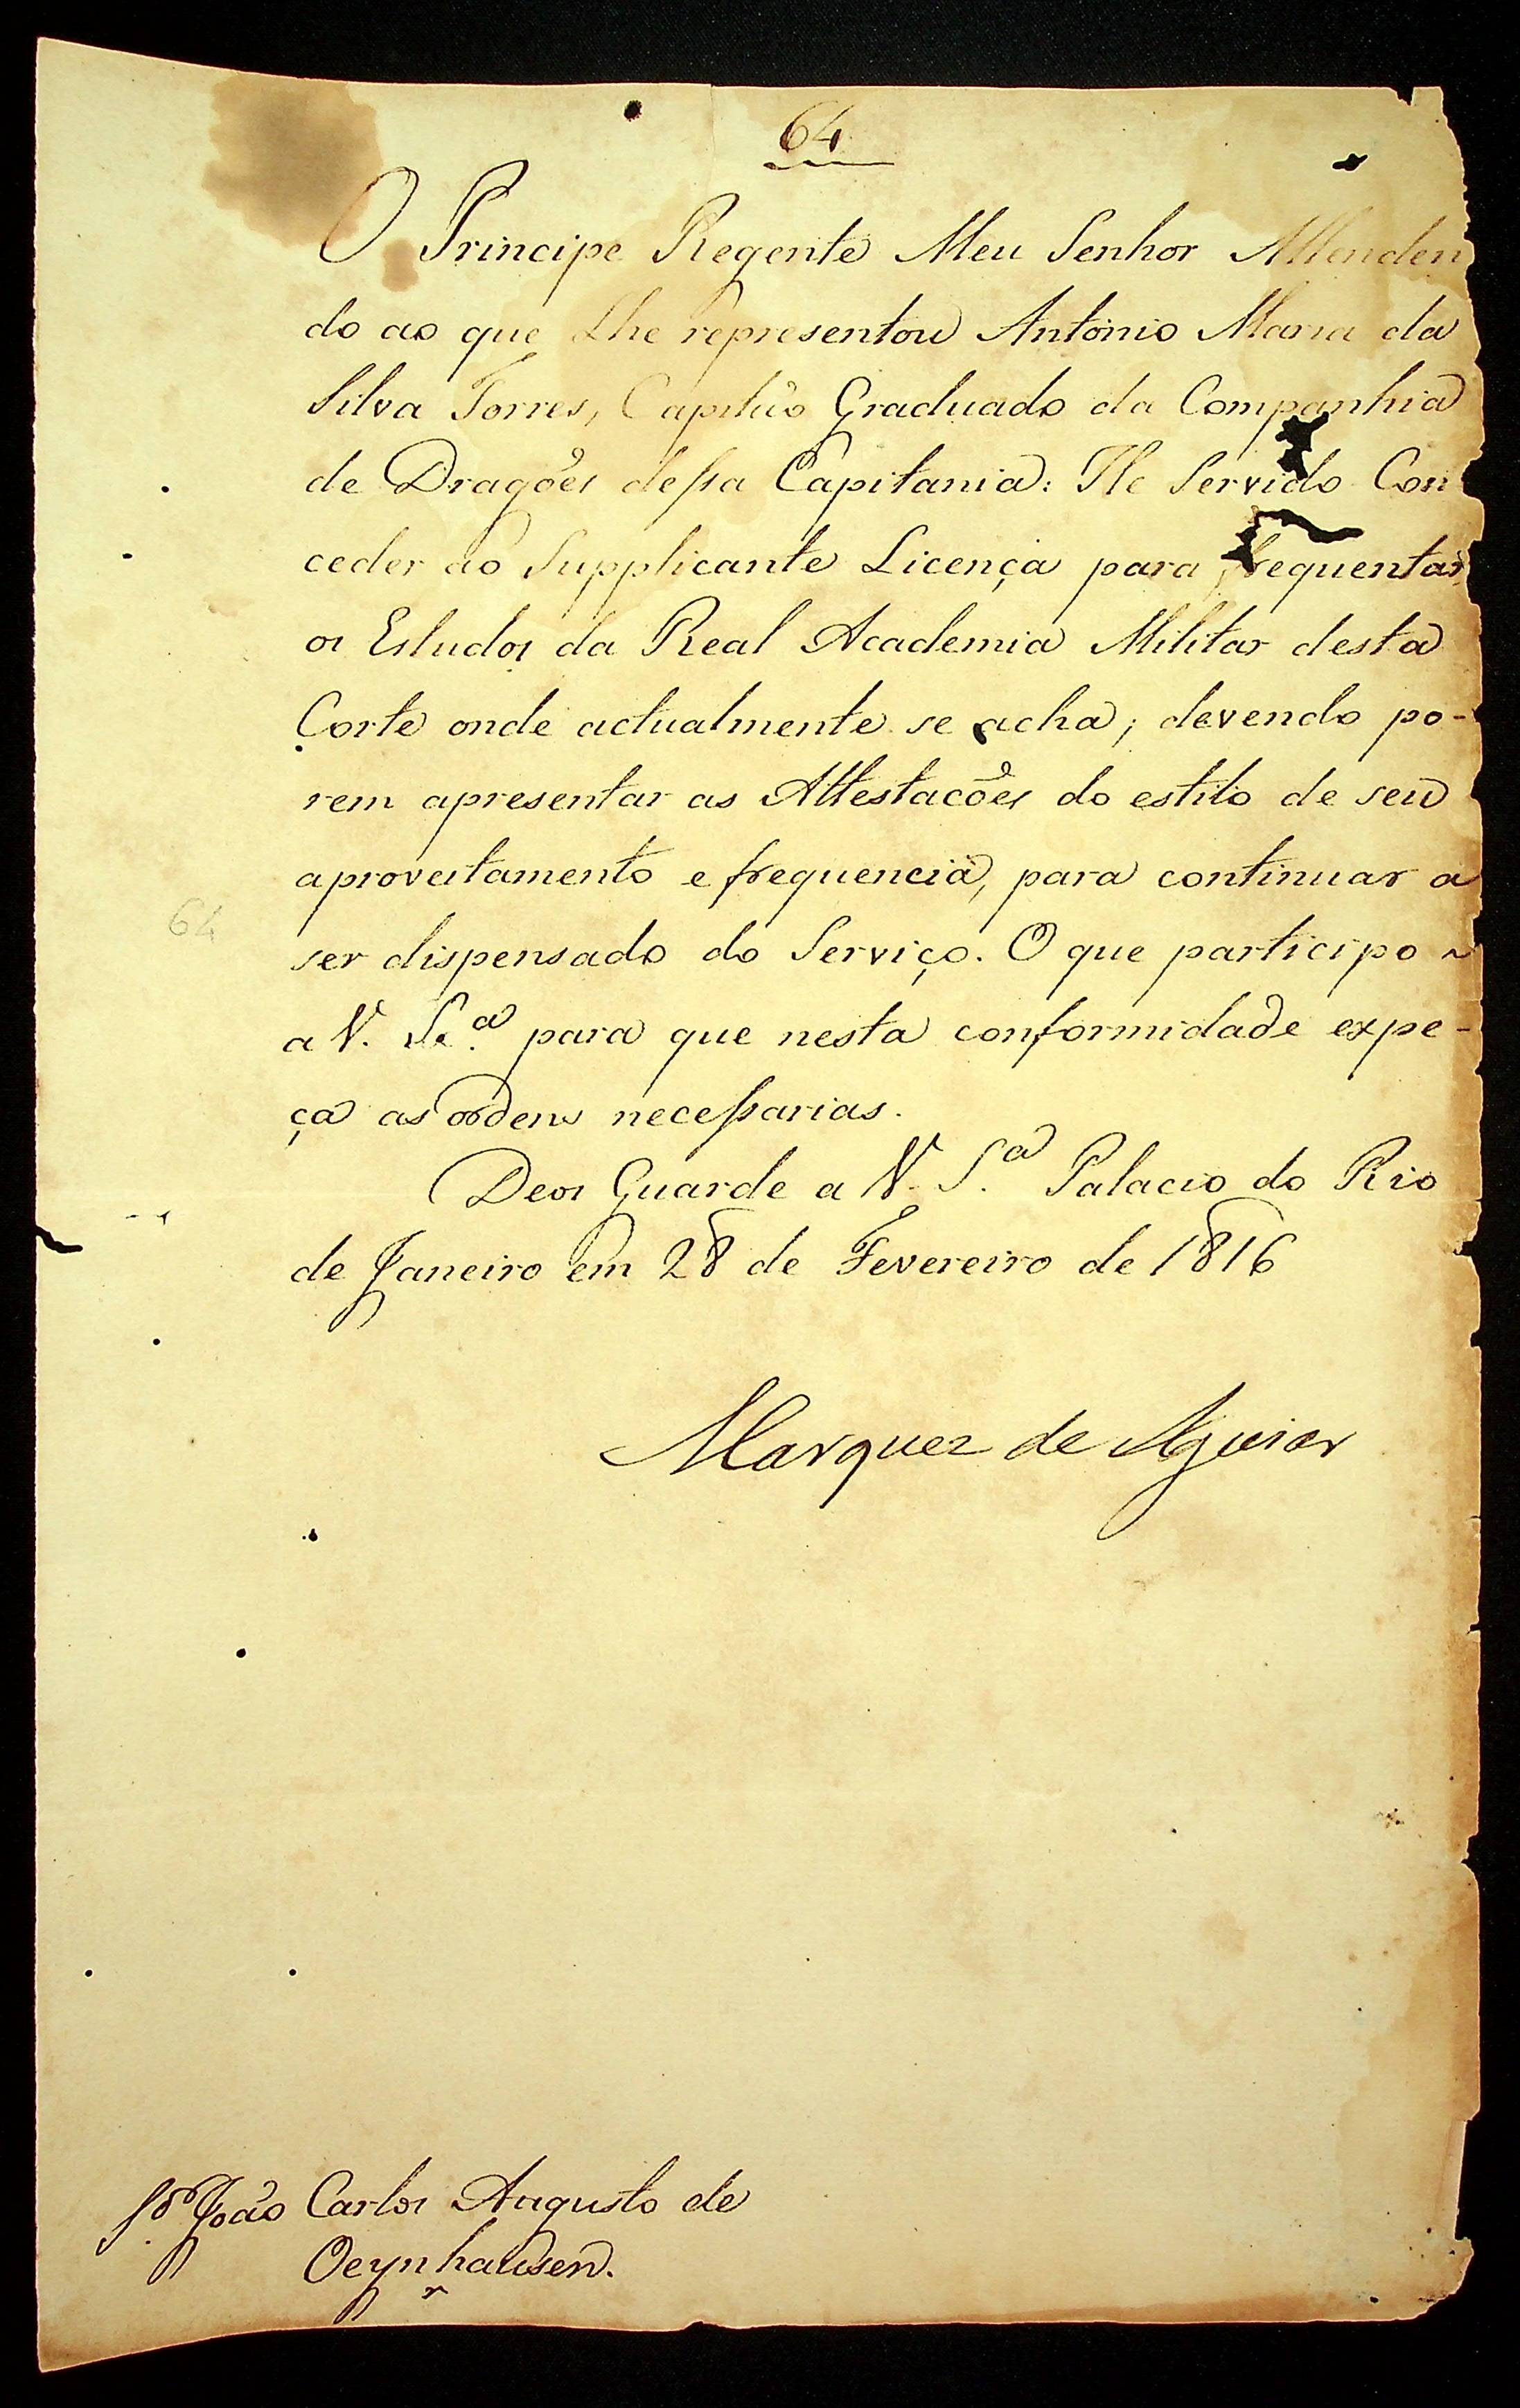 64
O Principe Regente Meu Senhor Attenden
do ao que Lhe representou Antonio Maria da
Silva Torres, Capitão Graduado da Companhia
de Dragões dessa Capitania: He Servido Con
ceder ao Supplicante Licença para frequentar
os Estudos da Real Academia Militar desta
Corte onde actualmente se acha; devendo po-
rem apresentar as Attestacões do estilo de seu
aproveitamento e frequencia, para continuar a
64
ser dispensado do Serviço. O que participo ~
a V. S.ª para que nesta conformidade expe-
ça as ordens necessarias.
Deos Guarde a V. S.ª Palacio do Rio
de Janeiro em 28 de Fevereiro de 1816
Marquez de Aguiar
S.r João Carlos Augusto de
Oeynhausen.